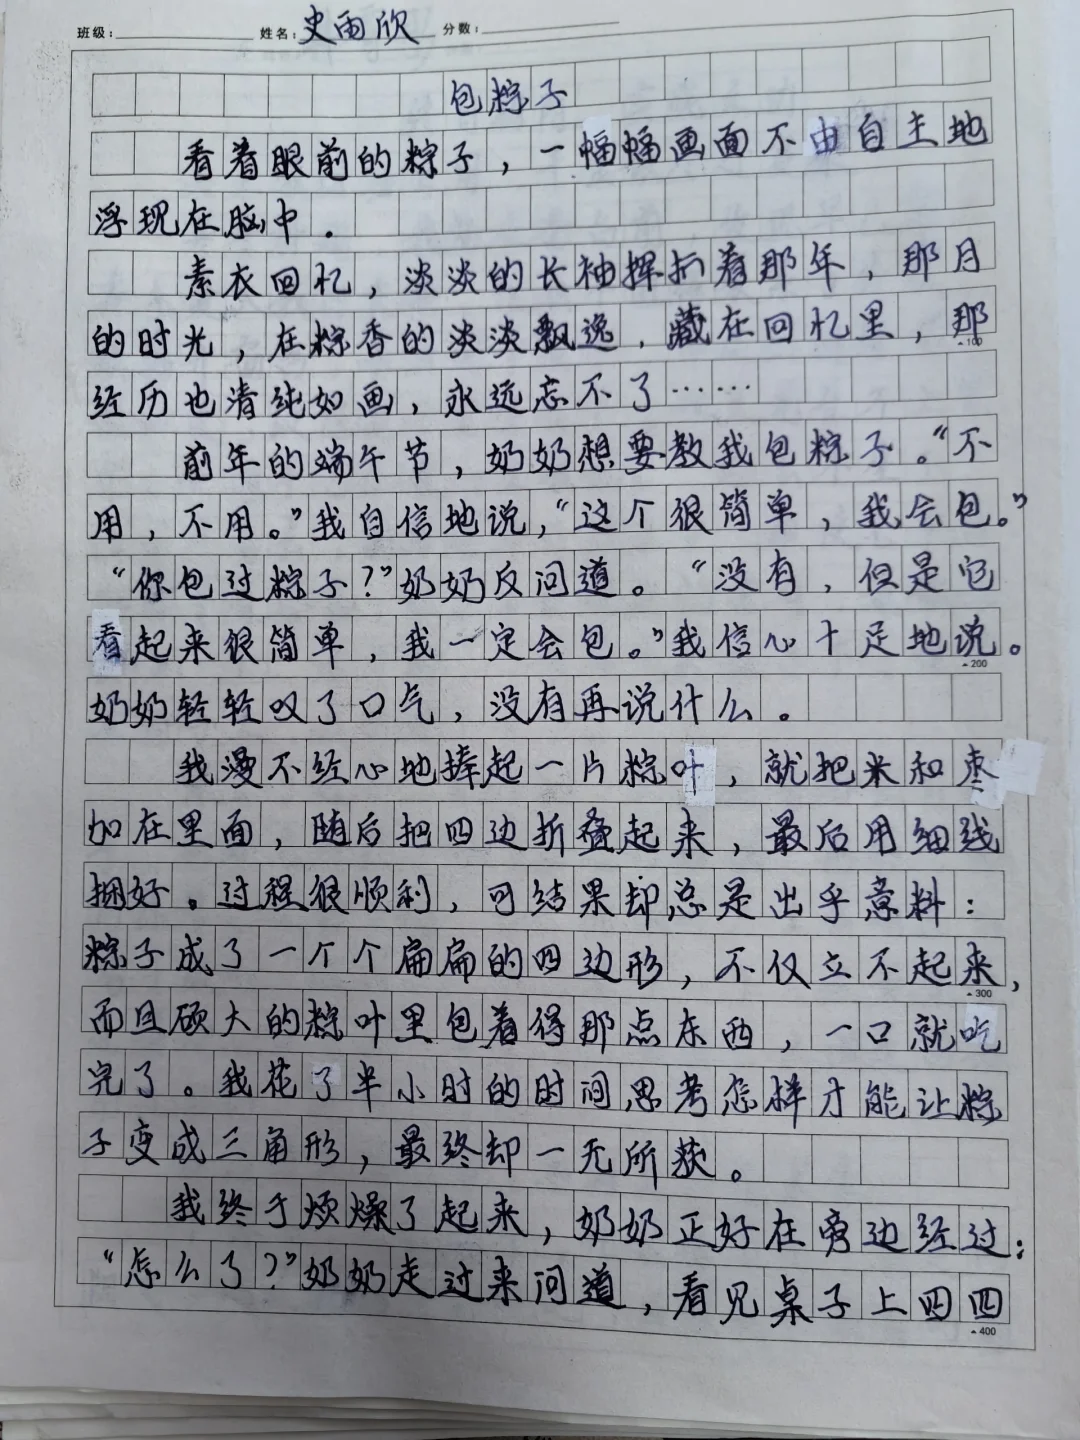 班级： 姓名：史雨欣 分数：
包粽子
看着眼前的粽子，一幅幅画面不由自主地
浮现在脑中．
素衣回忆，淡淡的长袖挥扬着那年，那月
的时光，在粽香的淡淡飘逸，藏在回忆里，那
▲100
经历也清纯如画，永远忘不了……
前年的端午节，奶奶想要教我包粽子。“不
用，不用。”我自信地说，“这个很简单，我会包。”
“你包过粽子？”奶奶反问道。“没有，但是它
看起来很简单，我一定会包。”我信心十足地说。
▲200
奶奶轻轻叹了口气，没有再说什么。
我漫不经心地捧起一片粽叶，就把米和枣
加在里面，随后把四边折叠起来，最后用细线
捆好。过程很顺利，可结果却总是出乎意料：
粽子成了一个个扁扁的四边形，不仅立不起来，
▲300
而且硕大的粽叶里包着得那点东西，一口就吃
完了。我花了半小时的时间思考怎样才能让粽
子变成三角形，最终却一无所获。
我终于烦燥了起来，奶奶正好在旁边经过：
“怎么了？”奶奶走过来问道，看见桌子上四四
▲400